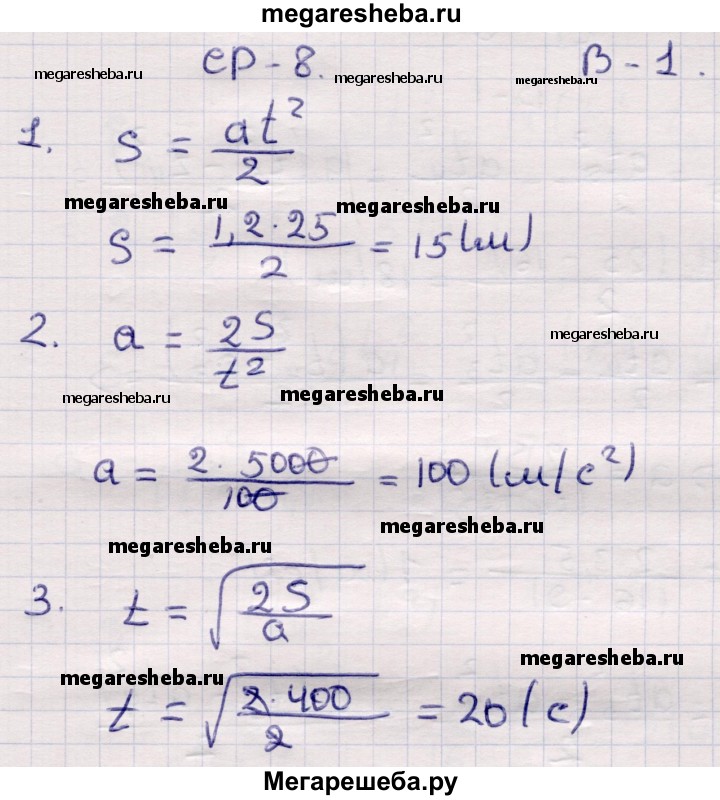 megaresheba.ru
СР-8. В-1.
megaresheba.ru megaresheba.ru megaresheba.ru
1. S = at²/2
megaresheba.ru megaresheba.ru
S = 1,2·25/2 = 15 (м)
2. a = 2S/t²
megaresheba.ru
megaresheba.ru megaresheba.ru
a = 2·5000/100 = 100 (м/с²)
megaresheba.ru
megaresheba.ru
3. t = √(2S/a)
megaresheba.ru
megaresheba.ru
t = √(2·400/2) = 20 (с)
Мегарешеба.ру